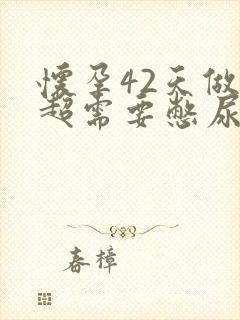 怀孕42天做
超需要憋尿
春樟